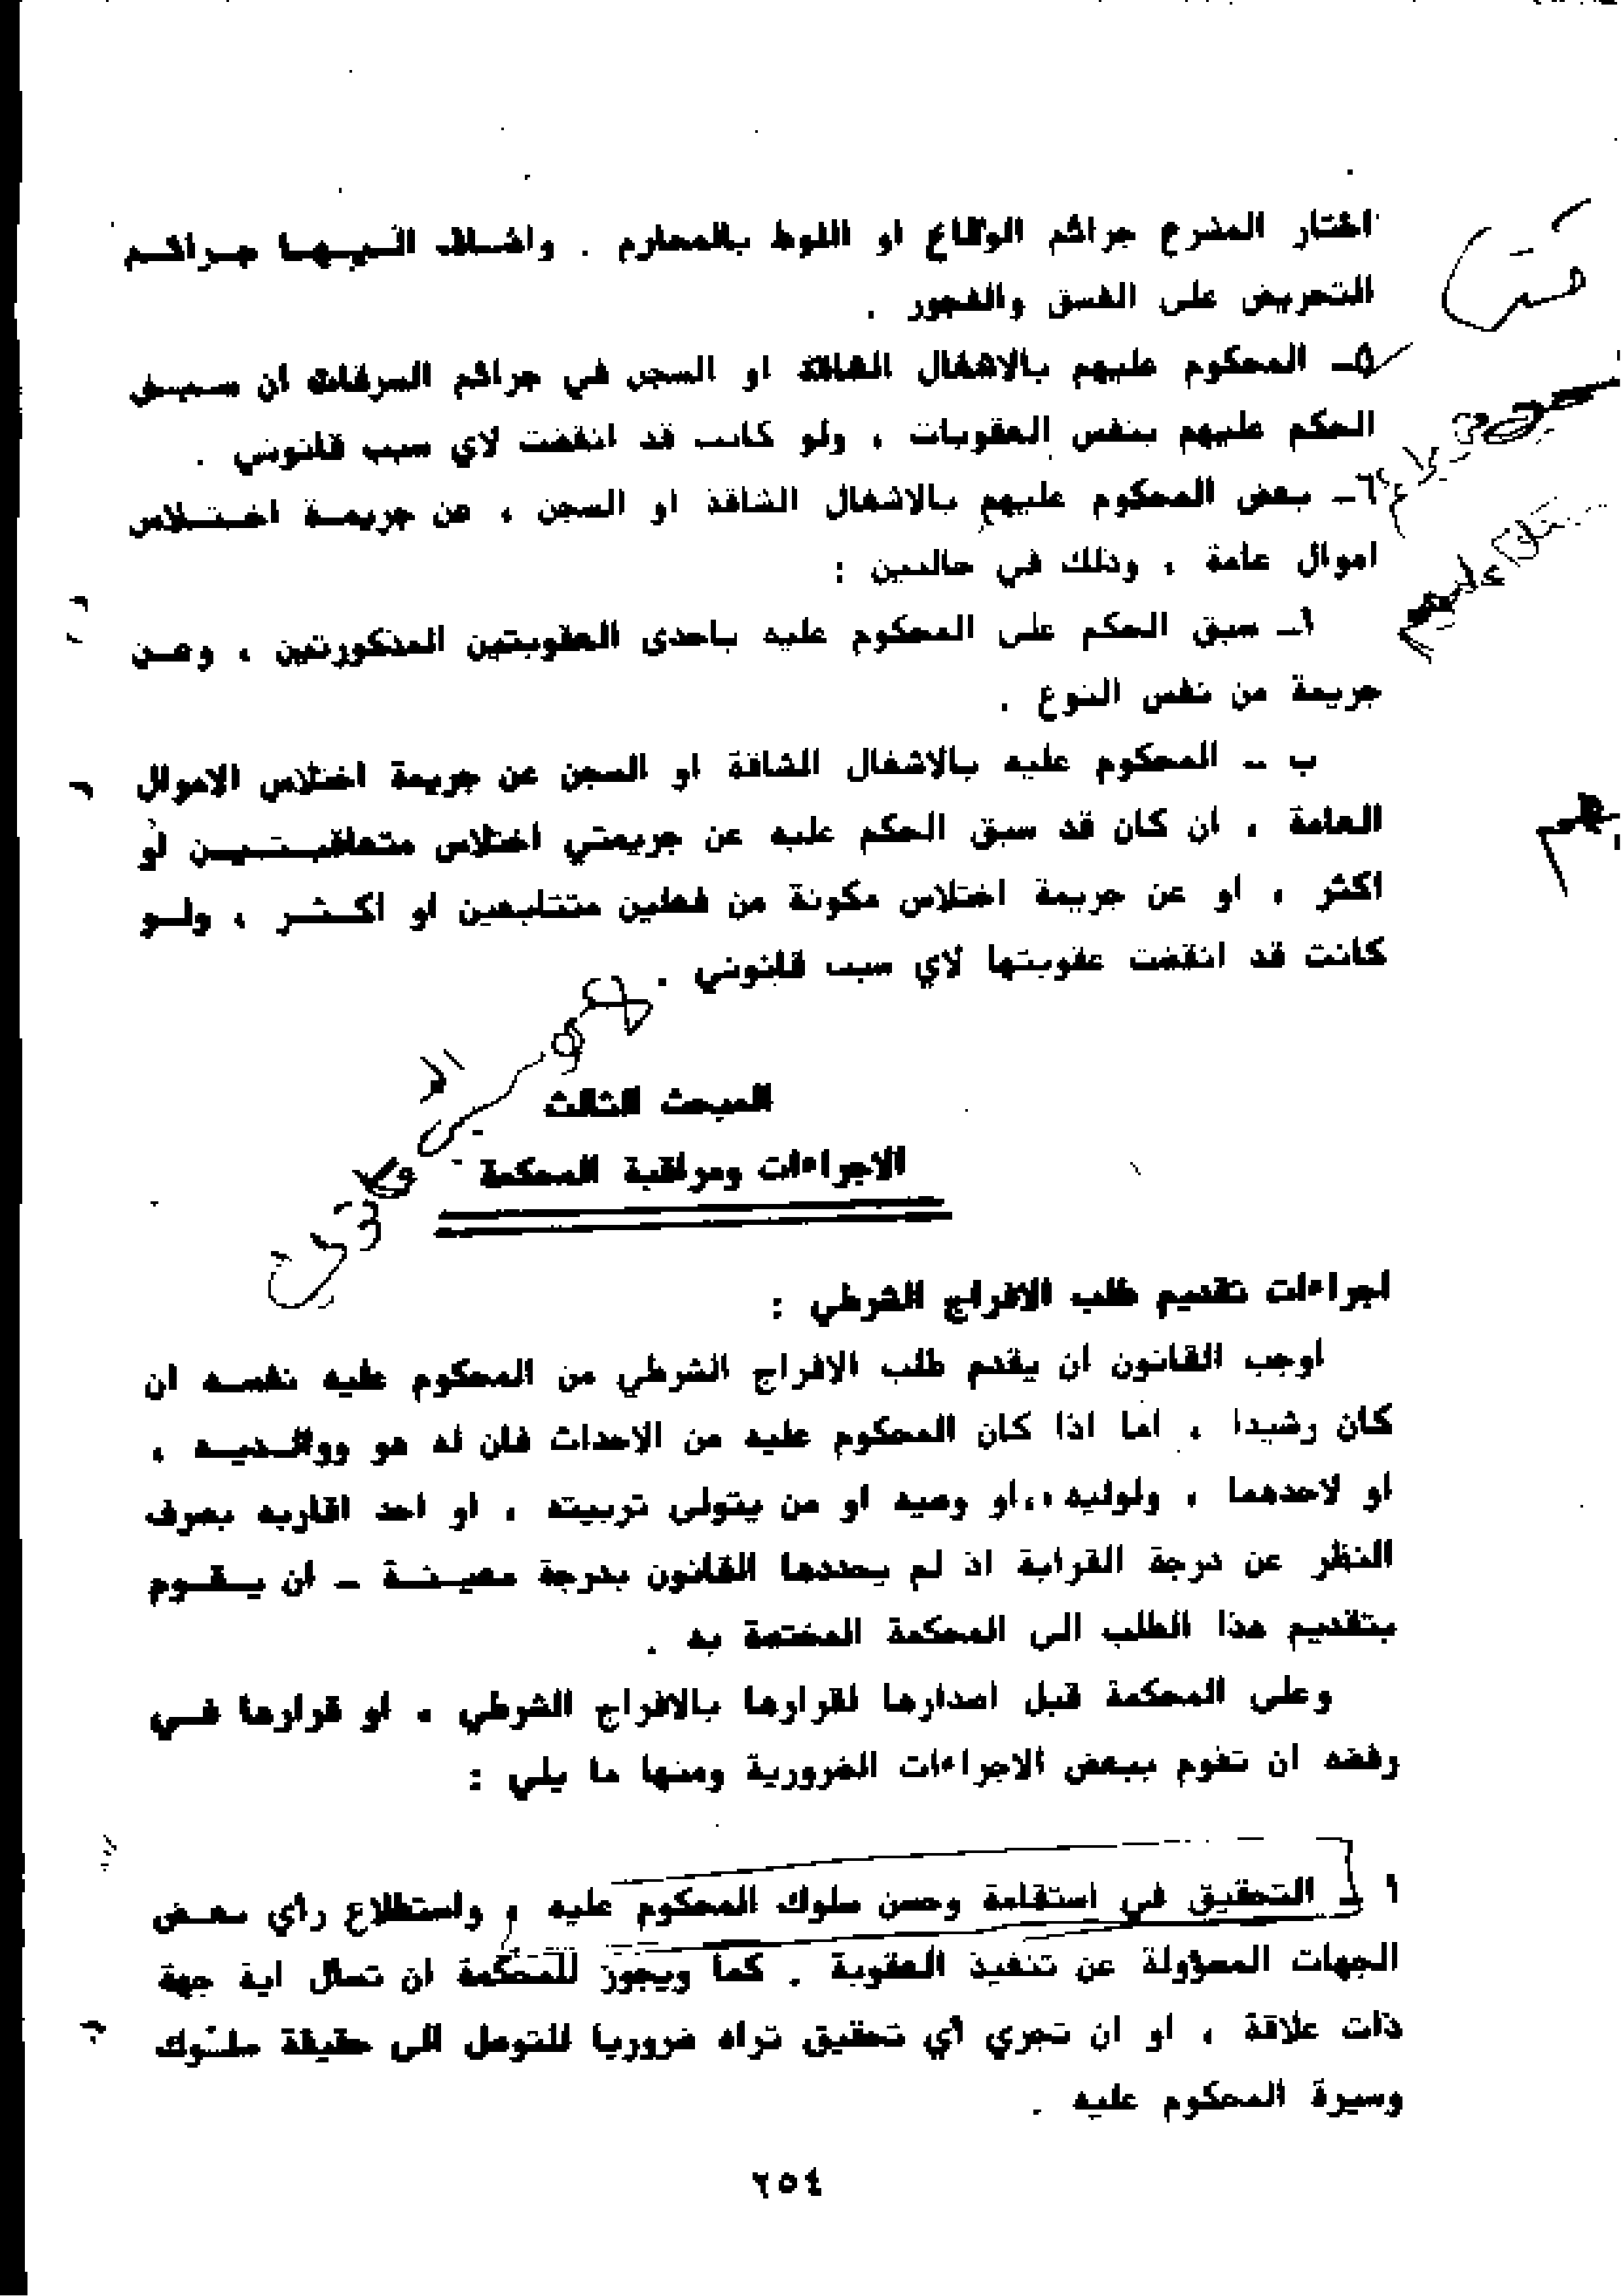 اختار المشرع جرائم الوقاع او اللوط بالمحارم . واضاف اليها جرائم
التحريض على الفسق والفجور .
٥ـ المحكوم عليهم بالاشغال الشاقة او السجن في جرائم السرقات ان سبق
الحكم عليهم بنفس العقوبات ، ولو كانت قد انقضت لاي سبب قانوني .
٦ـ بعض المحكوم عليهم بالاشغال الشاقة او السجن ، عن جريمة اختلاس
اموال عامة ، وذلك في حالتين :
أـ سبق الحكم على المحكوم عليه باحدى العقوبتين المذكورتين ، وعن
جريمة من نفس النوع .
ب ـ المحكوم عليه بالاشغال الشاقة او السجن عن جريمة اختلاس الاموال
العامة ، ان كان قد سبق الحكم عليه عن جريمتي اختلاس متعاقبتين او
اكثر ، او عن جريمة اختلاس مكونة من فعلين متتابعين او اكثر ، ولو
كانت قد انقضت عقوبتها لاي سبب قانوني .
المبحث الثالث
الاجراءات ومراقبة المحكمة
اجراءات تقديم طلب الافراج الشرطي :
اوجب القانون ان يقدم طلب الافراج الشرطي من المحكوم عليه نفسه ان
كان رشيدا ، اما اذا كان المحكوم عليه من الاحداث فان له هو ووالديه ،
او لاحدهما ، ولوليه ، او وصيه او من يتولى تربيته ، او احد اقاربه بصرف
النظر عن درجة القرابة اذ لم يحددها القانون بدرجة معينة ـ ان يقوم
بتقديم هذا الطلب الى المحكمة المختصة به .
وعلى المحكمة قبل اصدارها لقرارها بالافراج الشرطي ، او قرارها في
رفضه ان تقوم ببعض الاجراءات الضرورية ومنها ما يلي :
١ ـ التحقيق في استقامة وحسن سلوك المحكوم عليه ، واستطلاع رأي بعض
الجهات المسؤولة عن تنفيذ العقوبة . كما ويجوز للمحكمة ان تسأل اية جهة
ذات علاقة ، او ان تجري أي تحقيق تراه ضروريا للتوصل الى حقيقة سلوك
وسيرة المحكوم عليه .
٢٥٤